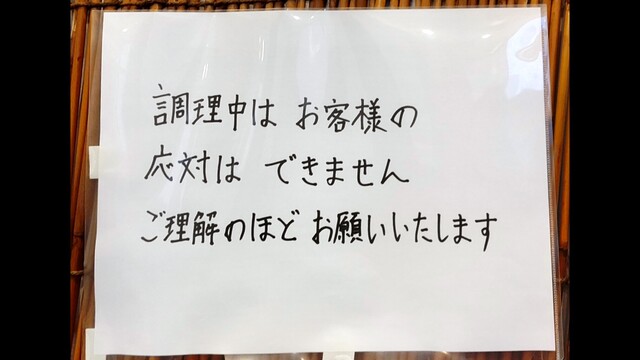 調理中は お客様の
応対は できません
ご理解のほど お願いいたします